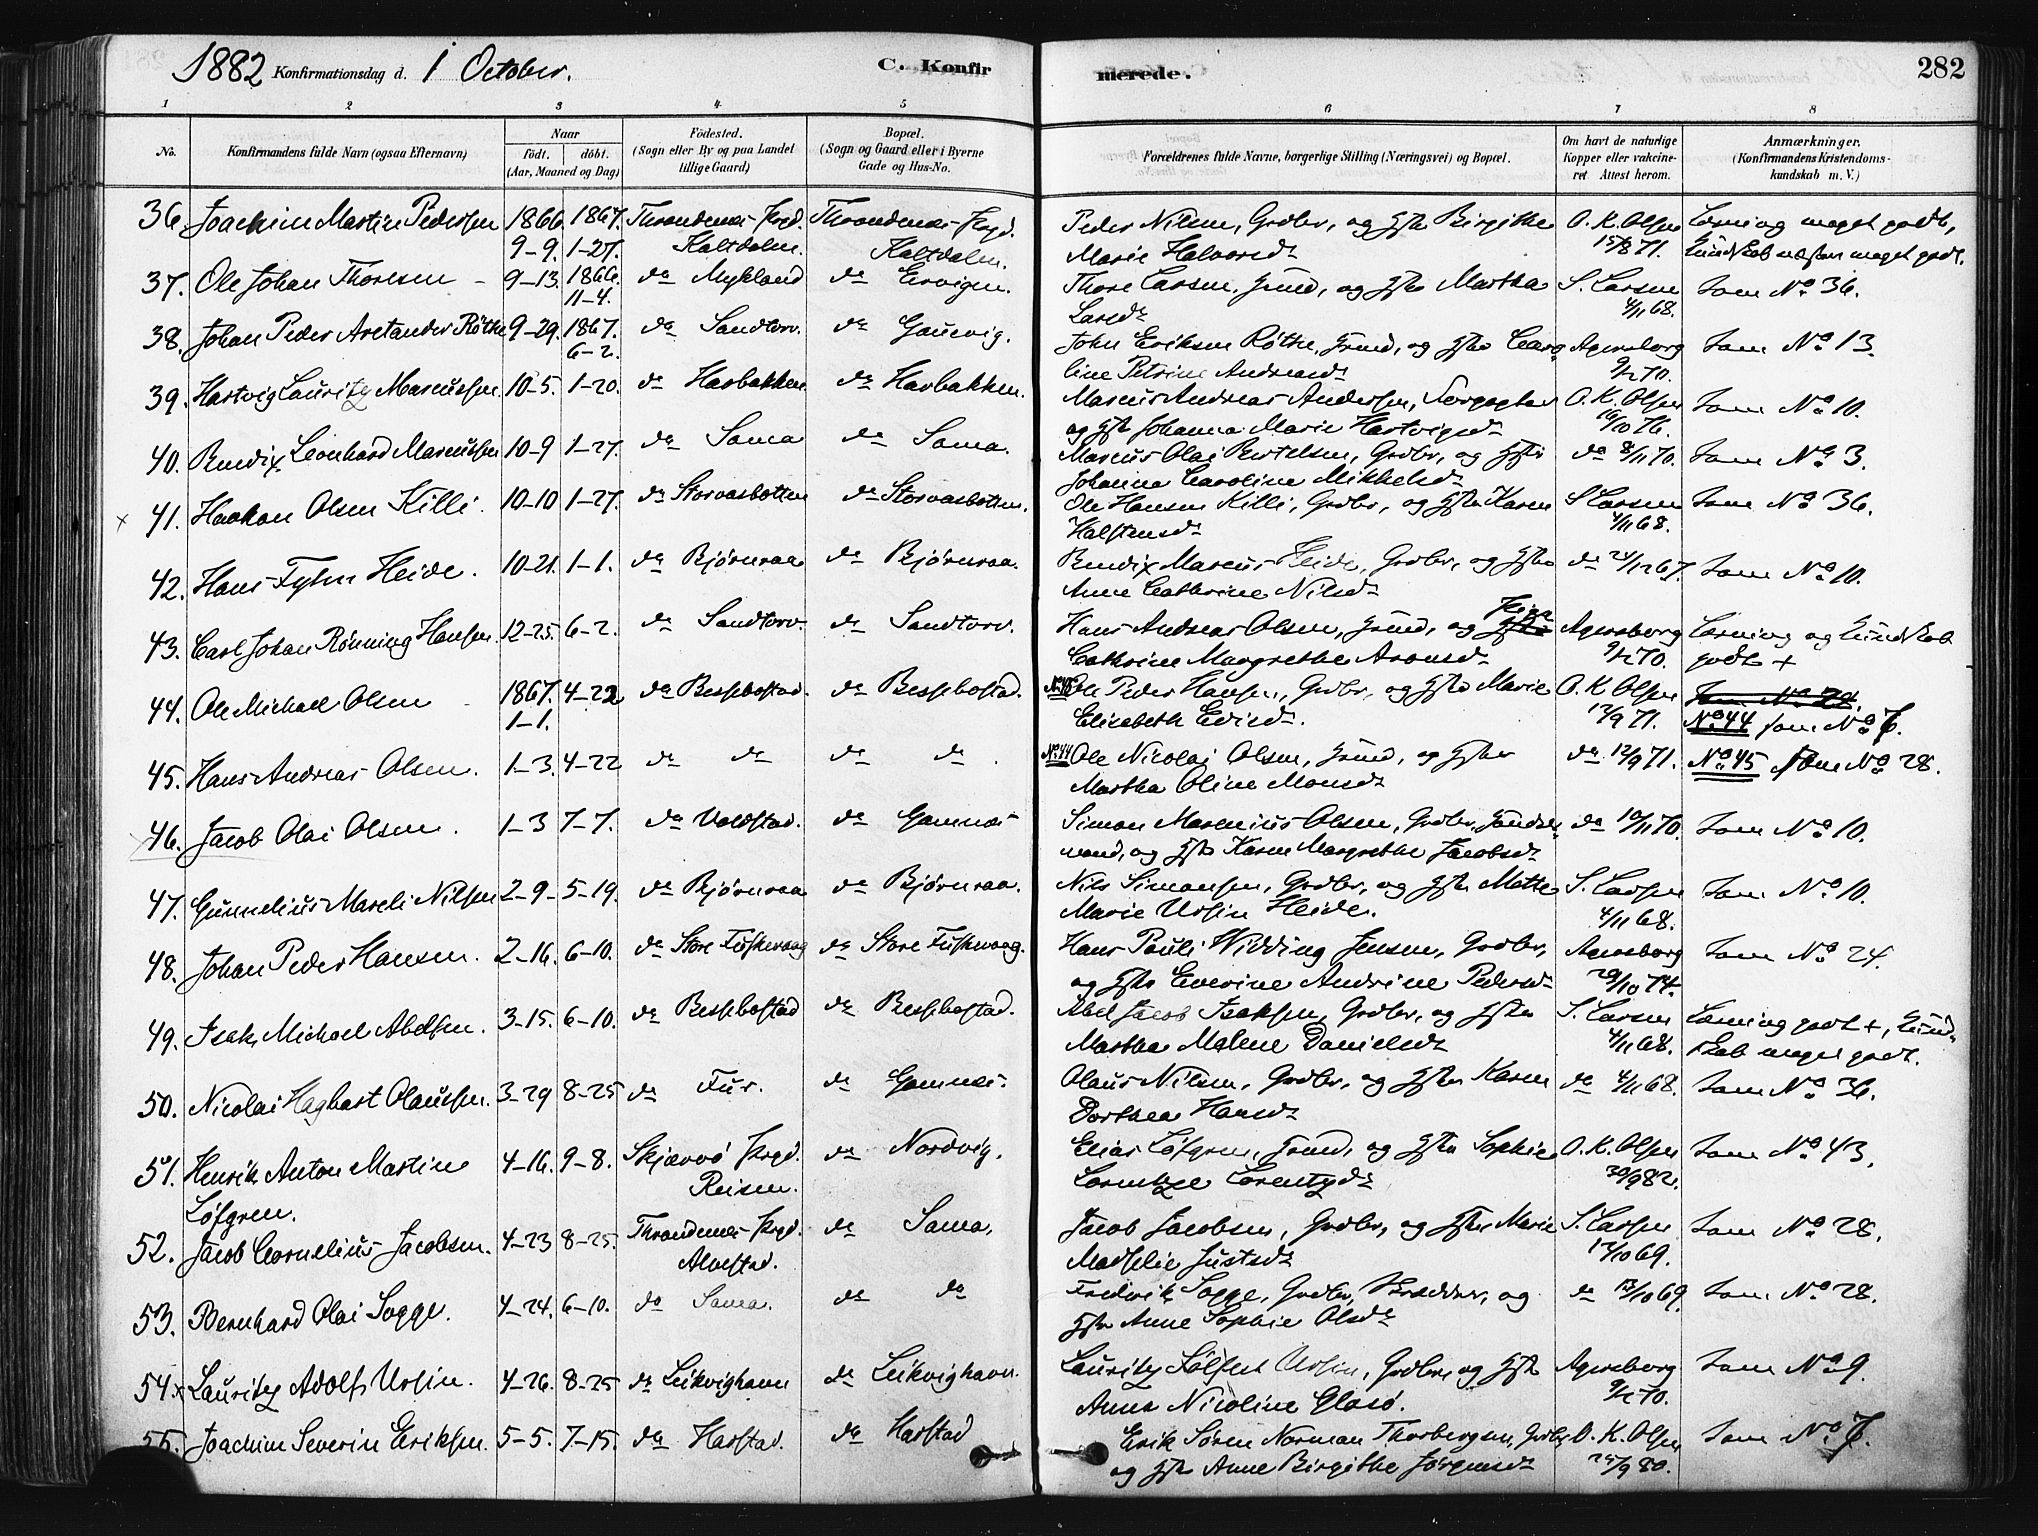 1882 Konfirmationsdag d. 1 October. C. Konfirmerede. 282
1 2 3 4 5 6 7 8
No. Konfirmandens fulde Navn (ogsaa Efternavn) Naar Født. døbt. (Aar, Maaned og Dag) Fødested. (Sogn eller By og paa Landet tillige Gaard) Bopæl. (Sogn og Gaard eller i Byerne Gade og Hus-No. Forældrenes fulde Navne, borgerlige Stilling (Næringsvei) og Bopæl. Om havt de naturlige Kopper eller vakcineret Attest herom. Anmærkninger. (Konfirmandens Kristendomskundskab m. V.)
36. Joachim Martin Pedersen 1866. 1867. Throndenes Prgd. Throndenes Prgd. Peder Nilsen, Grdbr, og Hstr Birgithe O. K. Olsen Læsning meget godt,
9-9. 1-27. Kaltdalen. Kaltdalen. Marie Halvorsd 15/8 71. Kundskab næsten meget godt.
37. Ole Johan Thoresen 9-13. 1866. do Mykland do Ervigen. Thore Larsen, Inds, og Hstr Martha S. Larsen Som No 36.
11-4. Larsd 4/11 68.
38. Johan Peder Aretander Röthe 9-29. 1867. do Sandtorv. do Gausvig. John Eriksen Röthe, og Hstr Caro Agersborg Som No 13.
6-2. line Petrine Andreasd 9/2 70.
39. Hartvig Lauritz Marcussen 10-5. 1-20. do Havbakken do Havbakken. Marcus Andreas Andersen, O. K. Olsen Som No 10.
og Hstr Johanna Marie Hartvigsd 16/10 76.
40. Bendix Leonhard Marcussen 10-9 1-27. do Sama do Sama. Marcus Olai Bertelsen, Grdbr, og Hstr do 8/11 70. Som No 3.
Johanna Caroline Mikkelsd
x 41. Haakon Olsen Killi. 10-10 1-27. do Storvasbotten do Storvasbotten. Ole Hansen Killi, Grdbr, og Hstr Karen S Larsen Som No 36.
Halstensd 4/11 68.
42. Hans Fylm Heide. 10-21. 1-1. do Bjørnraa do Bjørnraa. Bendix Marcus Heide, Grdbr, og Hstr do 24/12 67. Som No 10.
Anne Cathrine Nilsd
43. Carl Johan Rönning Hansen 12-25. 6-2. do Sandtorv. do Sandtorv. Hans Andreas Olsen, og Pige Agersborg Læsning og Kundskab
Cathrine Margrethe Aronsd 9/2 70. godt +
44. Ole Michael Olsen 1867. 4-22 do Bessebostad. do Bessebostad. No 45 Ole Peder Hansen, Grdbr, og Hstr Marie O. K Olsen
1-1. Elisabeth Evisd. 12/9 71. No 44 som No 7.
45. Hans Andreas Olsen. 1-3. 4-22 do do do do. No 44 Ole Nicolai Olsen, og Hstr do 12/9 71. No 45 Som No 28.
Martha Oline Monsd
46. Jacob Olai Olsen. 1-3 7-7. do Voldstad. do Gamnes Simon Marenius Olsen, Grdbr, do 10/11 70. Som No 10.
mand, og Hstr Karen Margrethe Jacobsd
47. Gunnelius Mareli Nilsen 2-9- 5-19. do Bjørnraa do Bjørnraa. Nils Simonsen, Grdbr, og Hstr Mette S. Larsen Som No 10.
Marie Ursin Heide. 4/11 68.
48. Johan Peder Hansen. 2-16. 6-10. do Store Fuskevaag do Store Fuskevaag. Hans Pauli Widding Jensen, Grdbr, Agersborg Som No 24.
og Hstr Everine Andrine Pedersd 20/10 74.
49. Isak Michael Abelsen. 3-15. 6-10. do Bessebostad do Bessebostad. Abel Jacob Isaksen, Grdbr, og Hstr S. Larsen Læsning godt +, Kund-
Martha Malene Danielsd 4/11 68. skab meget godt.
50. Nicolai Hagbart Olaussen. 3-29 8-25 do Fur. do Gamnes. Olaus Nilsen, Grdbr, og Hstr Karen do 4/11 68. Som No 36.
Dorthea Hansd
51. Henrik Anton Martin 4-16. 9-8. Skjærvö Prgd. do Nordvig. Elias Löfgren, og Hstr Sophie O. K. Olsen Som No 43.
Löfgren. Reisen. Lorentze Lorentzd 30/9 82.
52. Jacob Cornelius Jacobsen. 4-23 8-25. Throndenes Prgd. do Sama. Jacob Jacobsen, Grdbr, og Hstr Marie S. Larsen Som No 28.
Alvestad. Madselie Justsd 12/10 69.
53. Bernhard Olai Sogge. 4-24. 6-10. do Sama. do do Fredrik Sogge, Grdbr, Skrædder, og do 12/10 69. Som No 28.
Hstr Anne Sophie Olsd
54. x Lauritz Adolf Ursin. 4-26. 8-25 do Leikvighavn do Leikvighavn. Lauritz Sölfest Ursin, Grdbr, og Hstr Agersborg Som No 9.
Anna Nicoline Glasö. 9/2 70.
55. Joachim Severin Eriksen. 5-5. 7-15. do Harstad. do Harstad Erik Sören Norman Thorbergsen, Grdbr, O. K. Olsen Som No 7.
og Hstr Anne Birgithe Jörgensd 24/9 80.